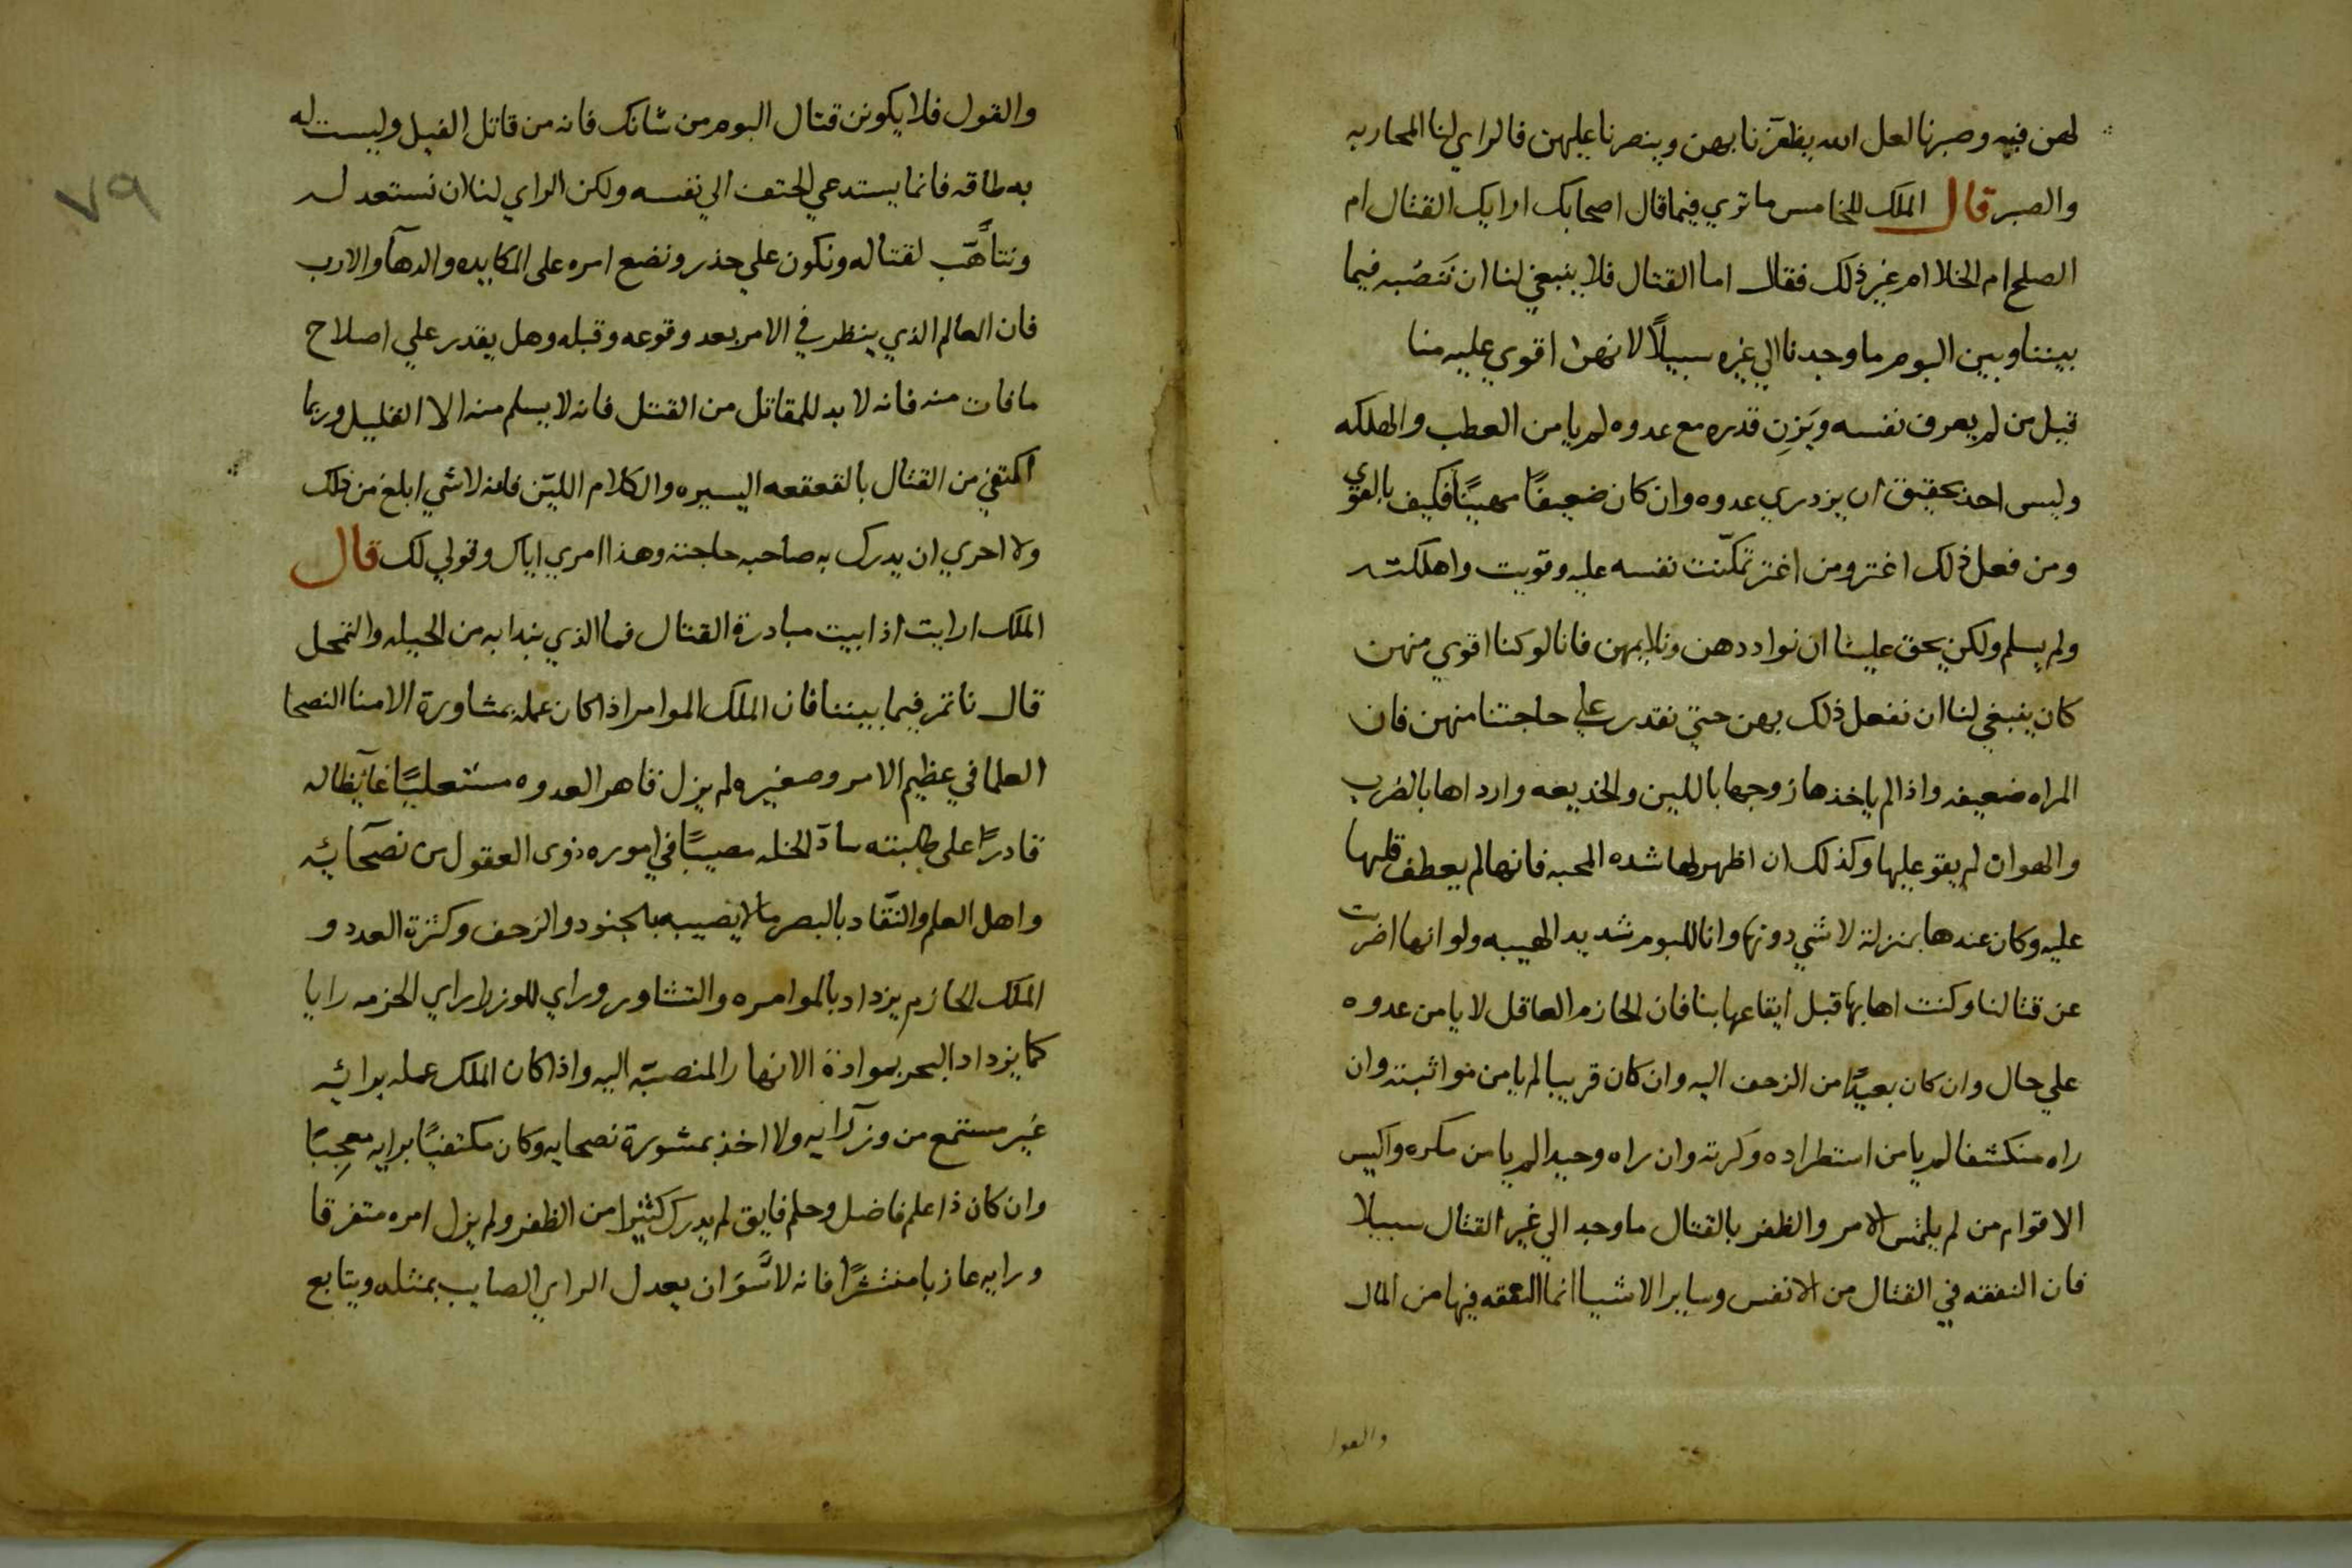 لهن فيه وصبرنا لعل الله يظفرنا بهن وينصرنا عليهن فالراي لنا المحاربه
والصبر قال الملك للخامس ما تري فيما قال اصحابك ارايك القتال ام
الصلح ام الخلا ام غير ذلك فقال اما القتال فلا ينبغي لنا ان ننصبه فيما
بيننا وبين البوم ما وجدنا الي غيره سبيلاً لانهن اقوي عليه منا
قيل من لم يعرف نفسه ويَزِن قدره مع عدوه لم يامن العطب والهلكه
وليس احد بحقيق ان يزدري عدوه وان كان ضعيفًا مهينًا فكيف بالقوي
ومن فعل ذلك اغتر ومن اغتر تمكّنت نفسه عليه وقويت واهلكته
ولم يسلم ولكن يحق علينا ان نوادد هن ونلايمهن فانا لو كنا اقوي منهن
كان ينبغي لنا ان نفعل ذلك بهن حتي نقدر علي حاجتنا منهن فان
المراه ضعيفه واذا لم ياخذها زوجها باللين والخديعه وارداها بالضرب
والهوان لم يقو عليها وكذلك ان اظهر لها شده المحبه فانها لم يعطف قلبها
عليه وكان عندها بمنزلة لا شي دونها وانا للبوم شديد الهيبه ولو انها اضربت
عن قتالنا وكنت اهابها قبل ايقاعها بنا فان الحازم العاقل لا يامن عدوه
علي حال وان كان بعيدًا من الزحف اليه وان كان قريبا لم يامن مواثبته وان
راه منكشفا لم يامن استطراده وكرته وان راه وحيدا لم يامن مكره واكيس
الاقوام من لم يلتمس الامر والظفر بالقتال ما وجد الي غير القتال سبيلا
فان النفقه في القتال من الانفس وساير الاشيا انما النفقه فيها من المال
والقول
والقول فلا يكونن قتال البوم من شانك فانه من قاتل الفيل وليست له
به طاقه فانما يستدعي الحتف الي نفسه ولكن الراي لنا ان نستعد له
ونتاهّب لقتاله ونكون علي حذر ونضع امره على المكايده والدهآ والارب
فان العالم الذي ينظر في الامر بعد وقوعه وقبله وهل يقدر علي اصلاح
ما فات منه فانه لا بد للمقاتل من القتل فانه لا يسلم منه الا القليل وربما
اكتفي من القتال بالقعقعه اليسيره والكلام الليّن فانه لا شي ابلغ من ذلك
ولا احري ان يدرك به صاحبه حاجته وهذا امري اياك وقولي لك قال
الملك ارايت اذا ابيت مبادرة القتال فما الذي نبدا به من الحيله والتمحل
قال ناتمر فيما بيننا فان الملك الموامر اذا كان عمله بمشاورة الامنا النصحا
العلما في عظيم الامر وصغيره لم يزل قاهر العدوه مستعليًا غآيظا له
قادرًا على طلبته سادّ الخله مصيبًا في اموره ذوى العقول من نصحآئه
واهل العلم والنّقاد بالبصر ما لا يصيبه بالجنود والزحف وكثرة العدد و
الملك الحازم يزداد بالموامره والتشاور وراي الوزرا راي الحزمه رايا
كما يزداد البحر بموادة الانهار المنصبّه اليه واذا كان الملك عمله برائه
غير مستمع من وزرآئه ولا اخذ بمشورة نصحايه وكان مكتفيًا برايه معجِبًا
وان كان ذا علم فاضل وحلم فايق لم يدرك كثيرا من الظفر ولم يزل امره متفرقا
ورايه عازبا منتشرًا فانه لا ان يعدل الراي الصايب بمثله ويتابع
٧٩